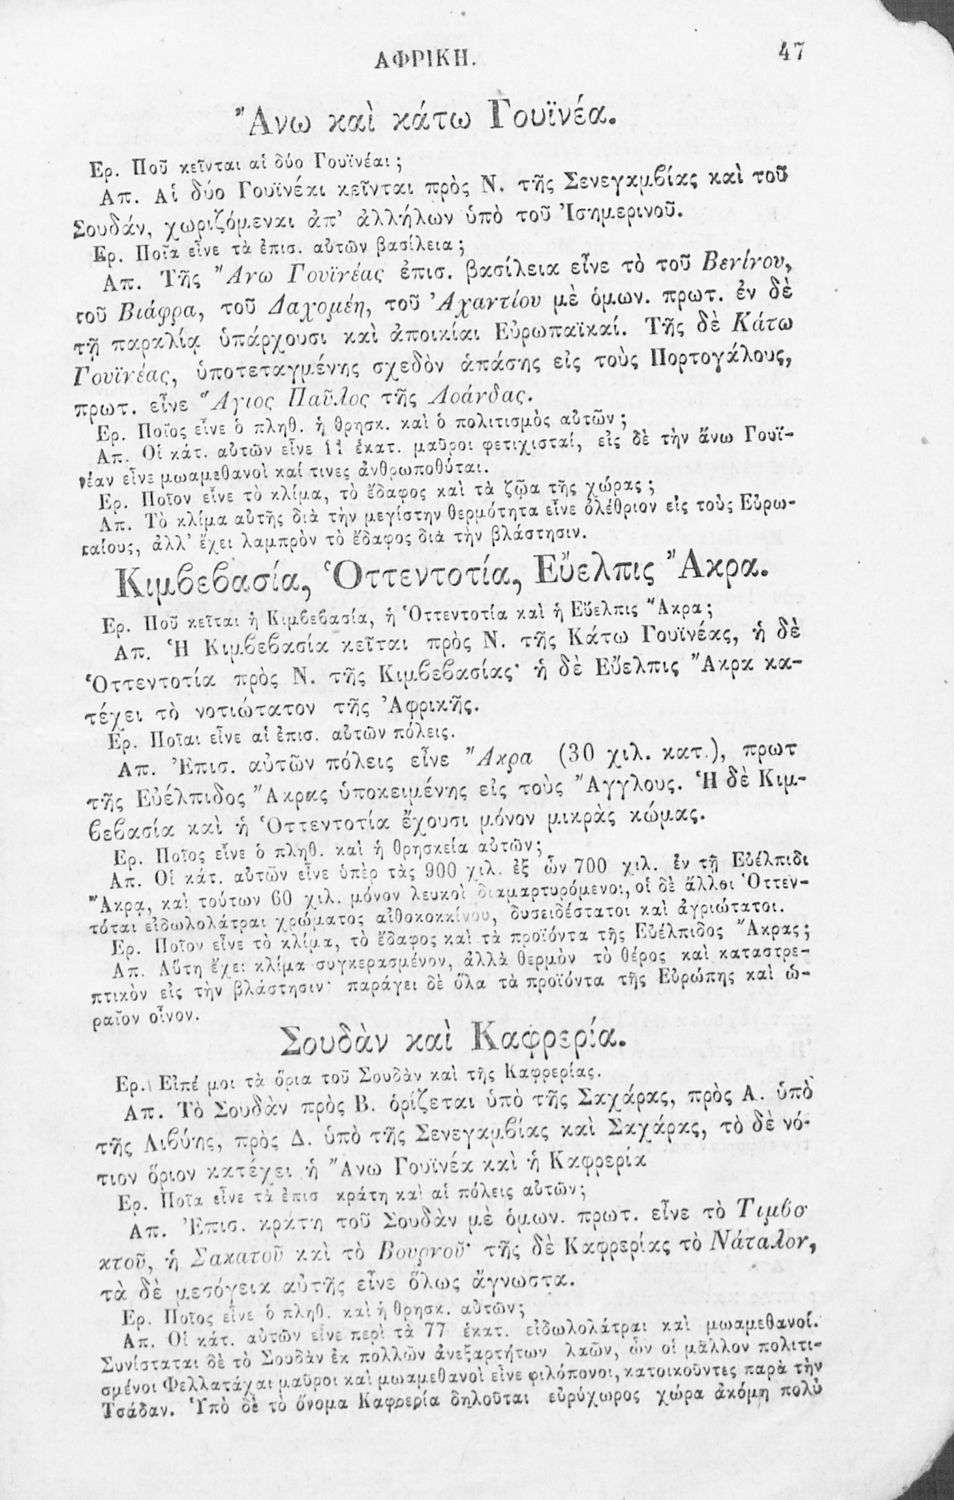 ΑΦΡΙΚΗ. 47
Ἄνω καὶ κάτω Γουϊνέα.
Ερ. Ποῦ κεῖνται αἱ δύο Γουϊνέαι;
Απ. Αἱ δύο Γουϊνέαι κεῖνται πρὸς Ν. τῆς Σενεγαμβίας καὶ τοῦ
Σουδάν, χωριζόμεναι ἀπ' ἀλλήλων ὑπὸ τοῦ Ἰσημερινοῦ.
Ερ. Ποῖα εἶνε τὰ ἐπισ. αὐτῶν βασίλεια;
Απ. Τῆς Ἄνω Γουϊνέας ἐπισ. βασίλεια εἶνε τὸ τοῦ Βενίνου,
τοῦ Βιάφρα, τοῦ Δαχομέη, τοῦ Ἀχαντίου μὲ ὁμων. πρωτ. ἐν δὲ
τῇ παραλίᾳ ὑπάρχουσι καὶ ἀποικίαι Εὐρωπαϊκαί. Τῆς δὲ Κάτω
Γουϊνέας, ὑποτεταγμένης σχεδὸν ἁπάσης εἰς τοὺς Πορτογάλους,
πρωτ. εἶνε Ἅγιος Παῦλος τῆς Λοάνδας.
Ερ. Ποῖος εἶνε ὁ πληθ. ἡ θρησκ. καὶ ὁ πολιτισμὸς αὐτῶν;
Απ. Οἱ κάτ. αὐτῶν εἶνε 11 ἑκατ. μαῦροι φετιχισταί, εἰς δὲ τὴν ἄνω Γουϊ-
νέαν εἶνε μωαμεθανοὶ καί τινες ἀνθρωποθύται.
Ερ. Ποῖον εἶνε τὸ κλίμα, τὸ ἔδαφος καὶ τὰ ζῷα τῆς χώρας;
Απ. Τὸ κλίμα αὐτῆς διὰ τὴν μεγίστην θερμότητα εἶνε ὀλέθριον εἰς τοὺς Εὐρω-
παίους, ἀλλ' ἔχει λαμπρὸν τὸ ἔδαφος διὰ τὴν βλάστησιν.
Κιμβεβασία, Ὁττεντοτία, Εὔελπις Ἄκρα.
Ερ. Ποῦ κεῖται ἡ Κιμβεβασία, ἡ Ὁττεντοτία καὶ ἡ Εὔελπις Ἄκρα;
Απ. Ἡ Κιμβεβασία κεῖται πρὸς Ν. τῆς Κάτω Γουϊνέας, ἡ δὲ
Ὁττεντοτία πρὸς Ν. τῆς Κιμβεβασίας· ἡ δὲ Εὔελπις Ἄκρα κα-
τέχει τὸ νοτιώτατον τῆς Ἀφρικῆς.
Ερ. Ποῖαι εἶνε αἱ ἐπισ. αὐτῶν πόλεις.
Απ. Ἐπισ. αὐτῶν πόλεις εἶνε Ἄκρα (30 χιλ. κατ.), πρωτ
τῆς Εὐέλπιδος Ἄκρας ὑποκειμένης εἰς τοὺς Ἄγγλους. Ἡ δὲ Κιμ-
βεβασία καὶ ἡ Ὁττεντοτία ἔχουσι μόνον μικρὰς κώμας.
Ερ. Ποῖος εἶνε ὁ πληθ. καὶ ἡ θρησκεία αὐτῶν;
Απ. Οἱ κάτ. αὐτῶν εἶνε ὑπὲρ τὰς 900 χιλ. ἐξ ὧν 700 χιλ. ἐν τῇ Εὐέλπιδι
Ἄκρᾳ, καὶ τούτων 60 χιλ. μόνον λευκοὶ διαμαρτυρόμενοι, οἱ δὲ ἄλλοι Ὁττεν-
τόται εἰδωλολάτραι χρώματος αἰθοκοκκίνου, δυσειδέστατοι καὶ ἀγριώτατοι.
Ερ. Ποῖον εἶνε τὸ κλίμα, τὸ ἔδαφος καὶ τὰ προϊόντα τῆς Εὐέλπιδος Ἄκρας;
Απ. Αὕτη ἔχει κλίμα συγκερασμένον, ἀλλὰ θερμὸν τὸ θέρος καὶ καταστρε-
πτικὸν εἰς τὴν βλάστησιν· παράγει δὲ ὅλα τὰ προϊόντα τῆς Εὐρώπης καὶ ὡ-
ραῖον οἶνον.
Σουδὰν καὶ Καφρερία.
Ερ. Εἰπέ μοι τὰ ὅρια τοῦ Σουδὰν καὶ τῆς Καφρερίας.
Απ. Τὸ Σουδὰν πρὸς Β. ὁρίζεται ὑπὸ τῆς Σαχάρας, πρὸς Α. ὑπὸ
τῆς Λιβύης, πρὸς Δ. ὑπὸ τῆς Σενεγαμβίας καὶ Σαχάρας, τὸ δὲ νό-
τιον ὅριον κατέχει ἡ Ἄνω Γουϊνέα καὶ ἡ Καφρερία
Ερ. Ποῖα εἶνε τὰ ἐπισ κράτη καὶ αἱ πόλεις αὐτῶν;
Απ. Ἐπισ. κράτη τοῦ Σουδὰν μὲ ὁμων. πρωτ. εἶνε τὸ Τιμβο
κτοῦ, ἡ Σακατοῦ καὶ τὸ Βουρνοῦ· τῆς δὲ Καφρερίας τὸ Νάταλον,
τὰ δὲ μεσόγεια αὐτῆς εἶνε ὅλως ἄγνωστα.
Ερ. Ποῖος εἶνε ὁ πληθ. καὶ ἡ θρησκ. αὐτῶν;
Απ. Οἱ κάτ. αὐτῶν εἶνε περὶ τὰ 77 ἑκατ. εἰδωλολάτραι καὶ μωαμεθανοί.
Συνίσταται δὲ τὸ Σουδὰν ἐκ πολλῶν ἀνεξαρτήτων λαῶν, ὧν οἱ μᾶλλον πολιτι-
σμένοι Φελλατάχαι μαῦροι καὶ μωαμεθανοὶ εἶνε φιλόπονοι, κατοικοῦντες παρὰ τὴν
Τσάδαν. Ὑπὸ δὲ τὸ ὄνομα Καφρερία δηλοῦται εὐρύχωρος χώρα ἀκόμη πολὺ